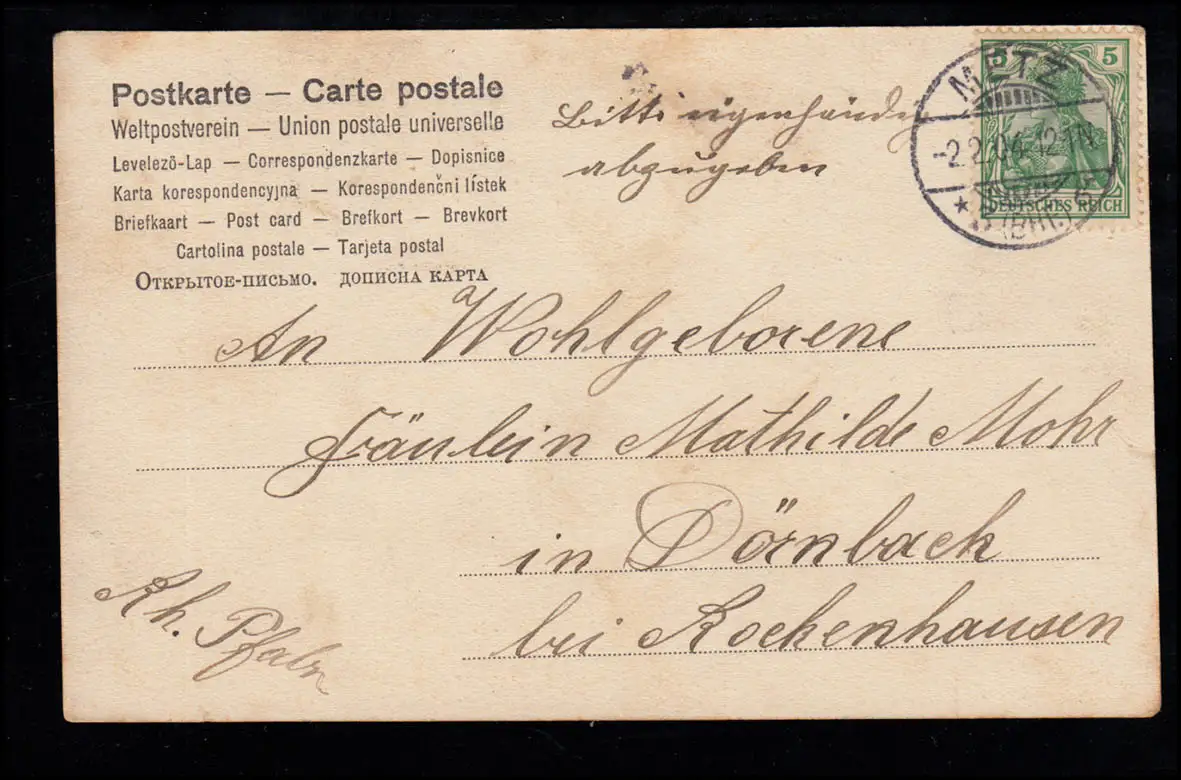 Postkarte — Carte postale
Weltpostverein — Union postale universelle
Levelezö-Lap — Correspondenzkarte — Dopisnice
Karta korespondencyjna — Korespondenční lístek
Briefkaart — Post card — Brefkort — Brevkort
Cartolina postale — Tarjeta postal
Открытое-письмо. дописна карта
Bitte eigenhändig
abzugeben
5 5
DEUTSCHES REICH
METZ
-2.2.04. 12-1N.
* (BHF.)
An Wohlgeborene
Fräulein Mathilde Mohr
in Dörnbach
bei Rockenhausen
Rh. Pfalz